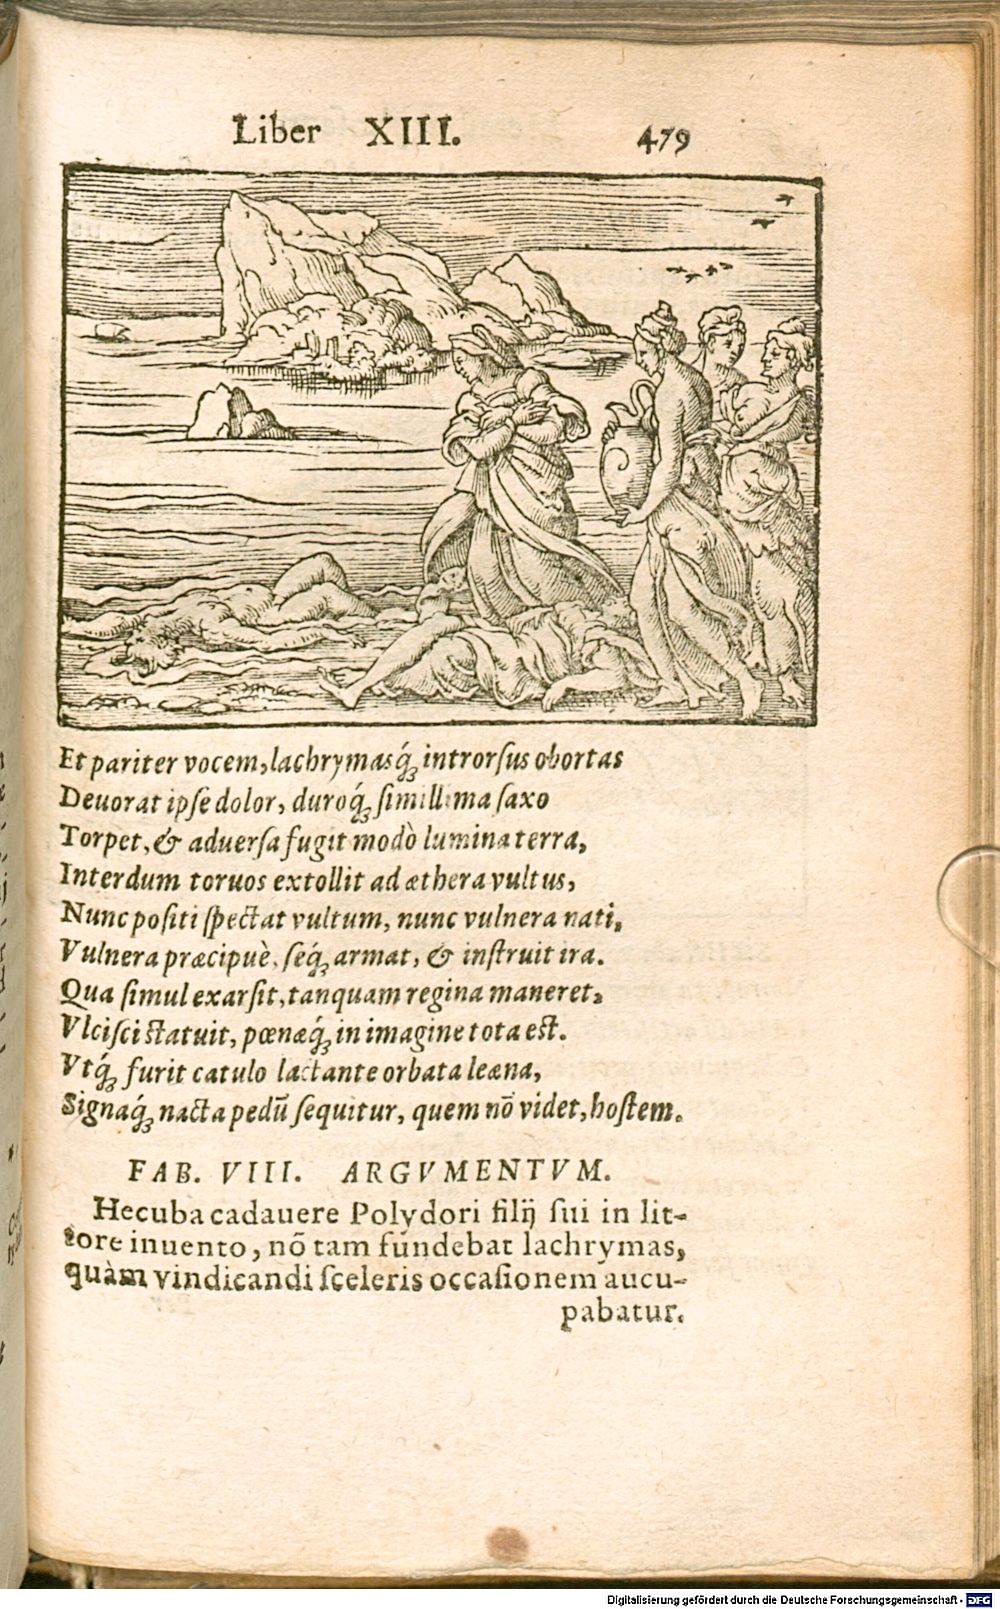 Liber XIII. 479
Et pariter vocem, lachrymasq́; introrsus obortas
Deuorat ipse dolor, duroq́; simillima saxo
Torpet, & aduersa fugit modò lumina terra,
Interdum toruos extollit ad æthera vultus,
Nunc positi spectat vultum, nunc vulnera nati,
Vulnera præcipuè, seq́; armat, & instruit ira.
Qua simul exarsit, tanquam regina maneret,
Vlcisci statuit, pœnæq́; in imagine tota est.
Vtq́; furit catulo lactante orbata leæna,
Signaq́; nacta pedũ sequitur, quem nõ videt, hostem.
FAB. VIII. ARGVMENTVM.
Hecuba cadauere Polydori filij sui in lit-
tore inuento, nõ tam fundebat lachrymas,
quàm vindicandi sceleris occasionem aucu-
pabatur.
Digitalisierung gefördert durch die Deutsche Forschungsgemeinschaft - DFG